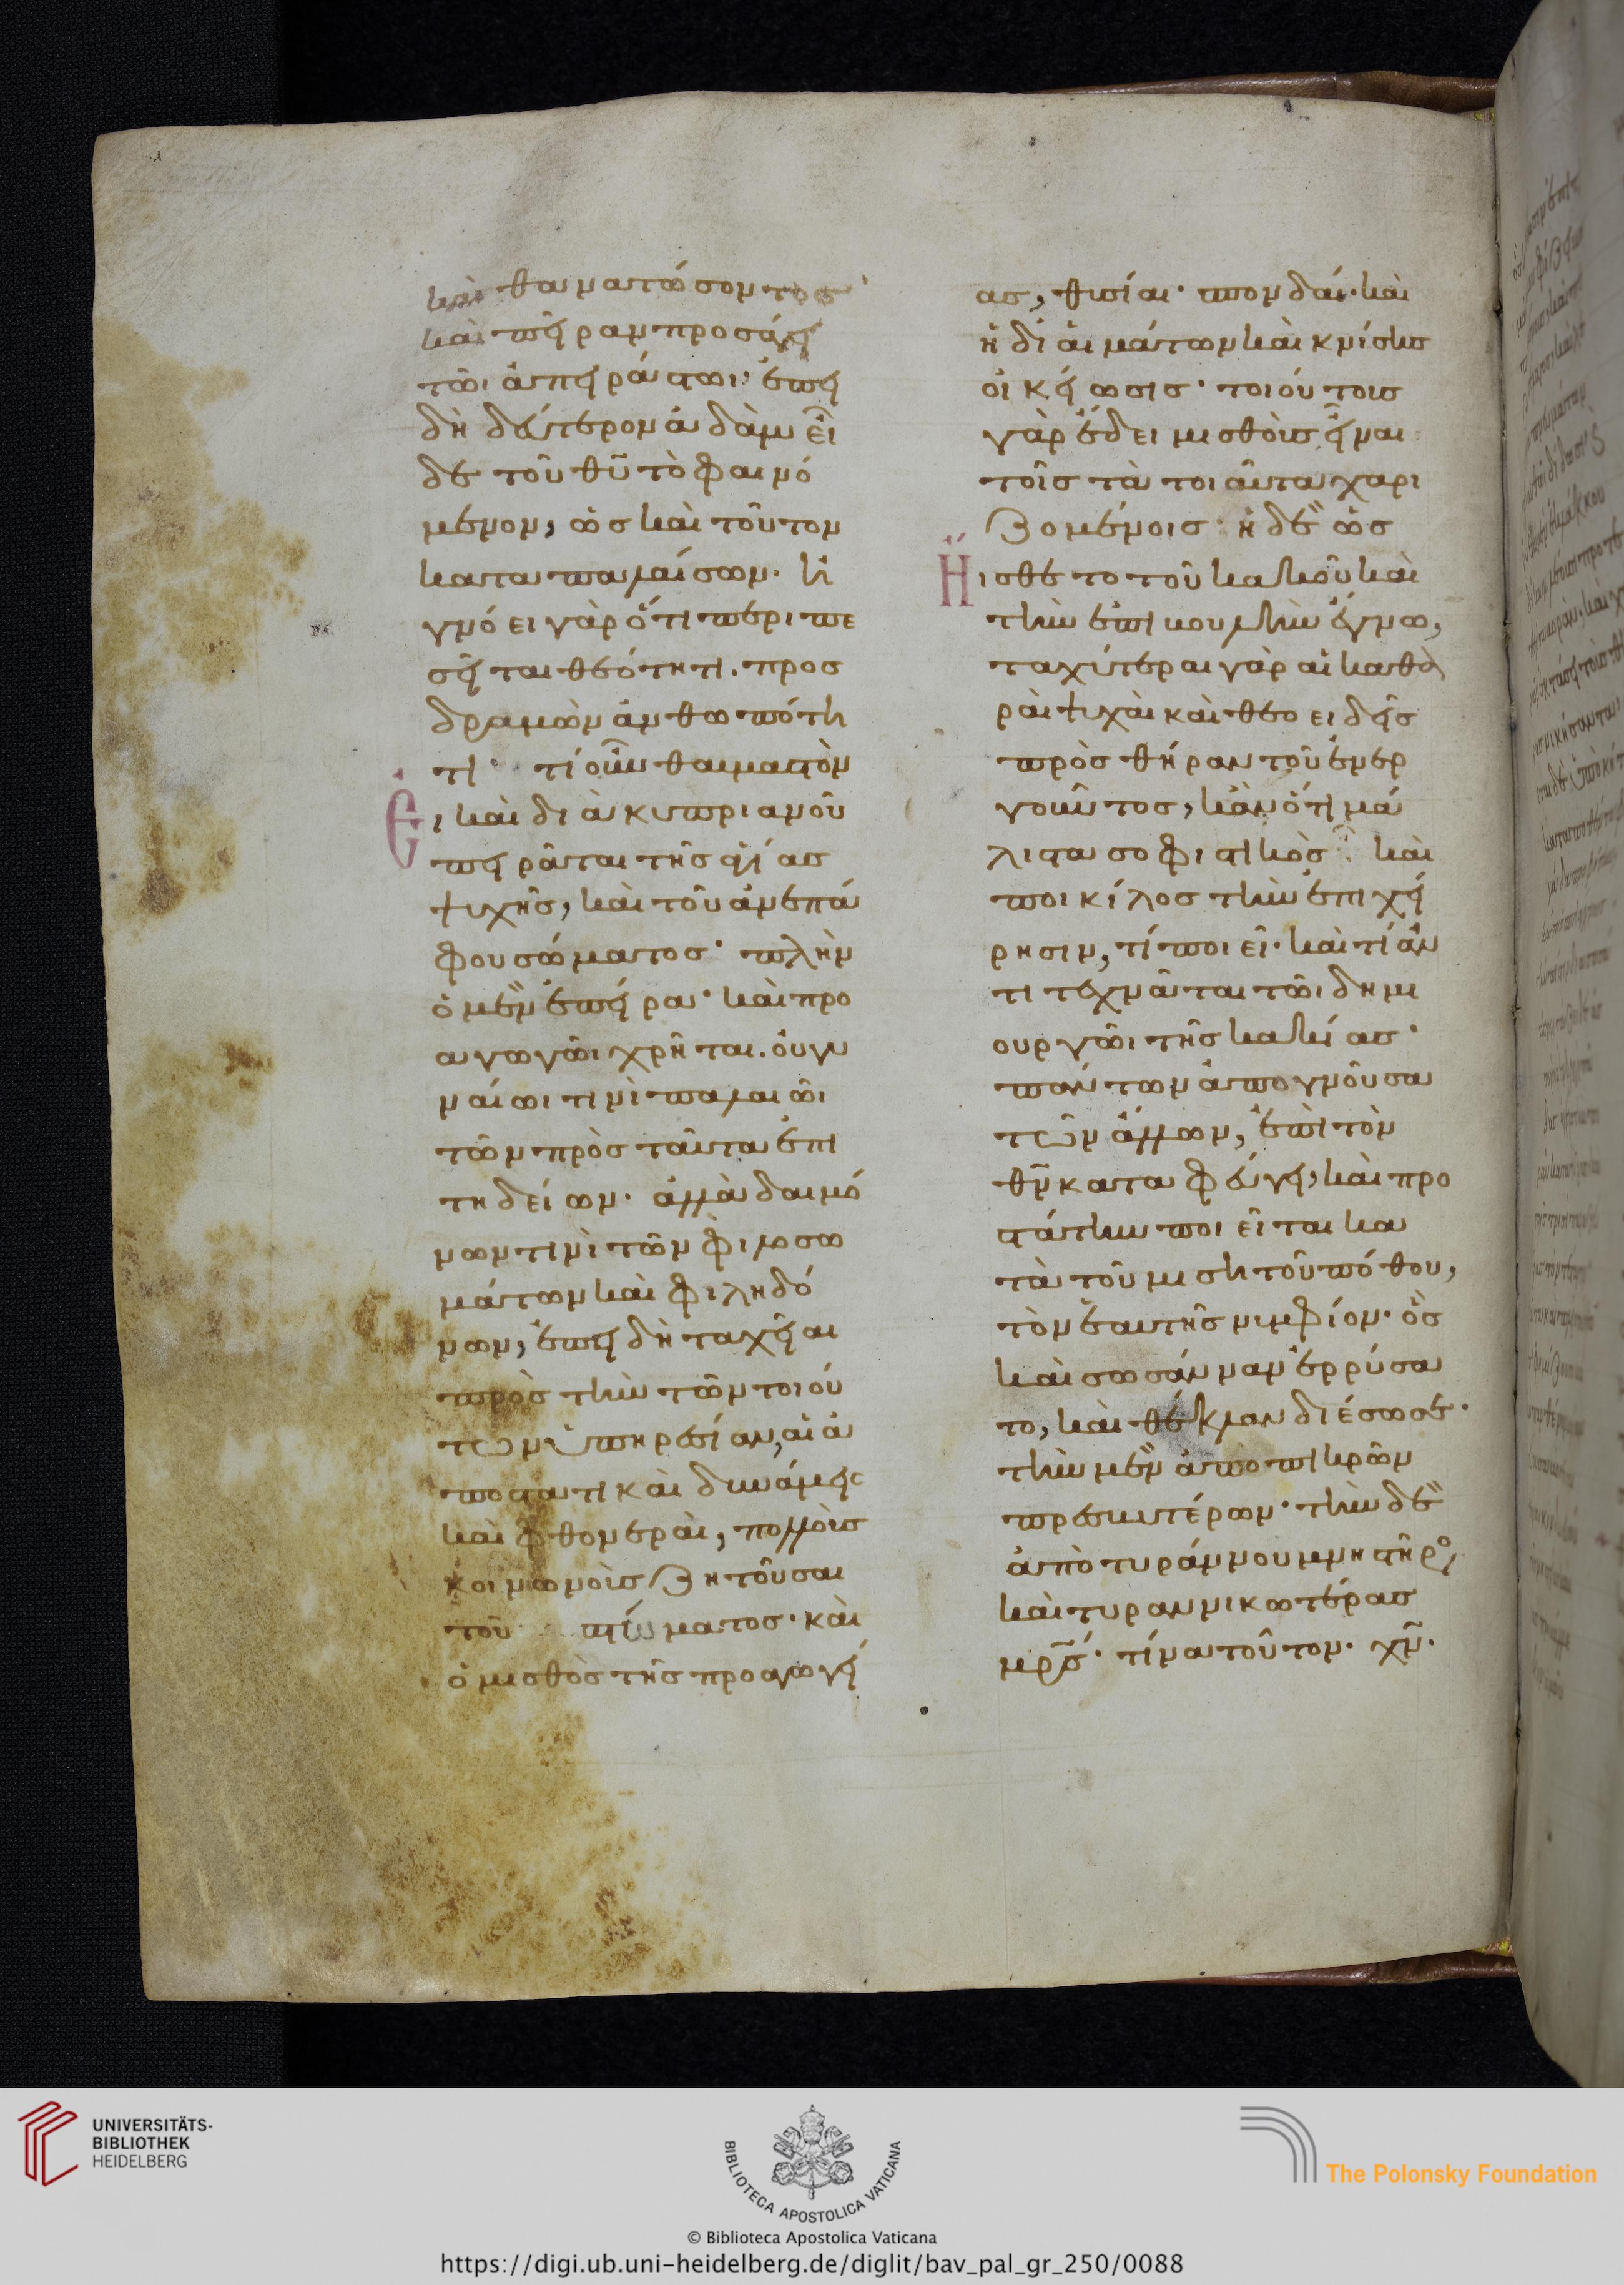 καὶ θανατώσοντος·
καὶ πεῖραν προσάγει
τῶι ἀπειράστωι· ἐπει
δὴ δεύτερον ἀδὰμ εἶ
δε τοῦ θ̅υ̅ τὸ φαινό
μενον, ὡς καὶ τοῦτον
καταπαλαίσων. ἠ
γνόει γὰρ ὅτι περιπε
σεῖται θεότητι. προσ
δραμὼν ἀνθρωπότη
τι· τί οὖν θαυμαστὸν
Εἰ καὶ διὰ κυπριανοῦ
πειρᾶται τῆς ἁγίας
ψυχῆς, καὶ τοῦ ἀνεπά
φου σώματος· πλὴν
ὁ μὲν ἐπείρα· καὶ προ
αγωγῶι χρῆται. οὐ γυ
ναίωι τινὶ παλαιῶι
τῶν πρὸς ταῦτα ἐπι
τηδείων· ἀλλὰ δαιμό
νων τινὶ τῶν φιλοσω
μάτων καὶ φιληδό
νων, ἐπειδὴ ταχεῖαι
πρὸς τὴν τῶν τοιού
των ὑπηρεσίαν, αἱ ἀ
ποστατικαὶ δυνάμεις
καὶ φθονεραὶ, πολλοὺς
κοινωνοὺς ζητοῦσαι
τοῦ πτώματος· καὶ
ὁ μισθὸς τῆς προαγωγεί
ας, θυσίαι· σπονδαί· καὶ
ἡ δι' αἱμάτων καὶ κνίσης
οἰκείωσις· τοιούτους
γὰρ ἔδει μισθοὺς εἶναι
τοῖς τὰ τοιαῦτα χαρι
ζομένοις· ἡ δὲ ὡς
Ἤισθετο τοῦ κακοῦ καὶ
τὴν ἐπιβουλὴν ἔγνω,
ταχύτεραι γὰρ αἱ καθα
ραὶ ψυχαὶ καὶ θεοειδεῖς
πρὸς θήραν τοῦ ἐνερ
γοῦντος, κἂν ὅτι μά
λιστα σοφιστικὸς ἦ· καὶ
ποικίλος τὴν ἐπιχεί
ρησιν, τί ποιεῖ· καὶ τί ἀν
τιτεχνᾶται τῶι δημι
ουργῶι τῆς κακίας·
πάντων ἀπογνοῦσα
τῶν ἄλλων, ἐπὶ τὸν
θ̅ν̅ καταφεύγει, καὶ προ
στάτην ποιεῖται κα
τὰ τοῦ μισητοῦ πόθου,
τὸν ἑαυτῆς νυμφίον· ὃς
καὶ σωσάνναν ἐρρύσα
το, καὶ θέκλαν διέσωσε·
τὴν μὲν ἀπὸ πικρῶν
πρεσβυτέρων· τὴν δὲ
ἀπὸ τυράννου μνηστῆρο
καὶ τυραννικωτέρας
μ̅ρ̅ς̅· τίνα τοῦτον· χ̅ν̅·
UNIVERSITÄTS-
BIBLIOTHEK
HEIDELBERG
BIBLIOTECA APOSTOLICA VATICANA
© Biblioteca Apostolica Vaticana
The Polonsky Foundation
https://digi.ub.uni-heidelberg.de/diglit/bav_pal_gr_250/0088